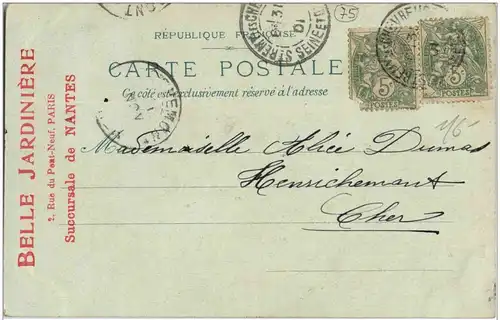 75
RÉPUBLIQUE FRANÇAISE
CARTE POSTALE
Ce côté est exclusivement réservé à l'adresse
5
POSTES
5
POSTES
Mademoiselle Alice Dumas
Henrichemont
Cher
BELLE JARDINIÈRE
2, Rue du Pont-Neuf, PARIS
Succursale de NANTES